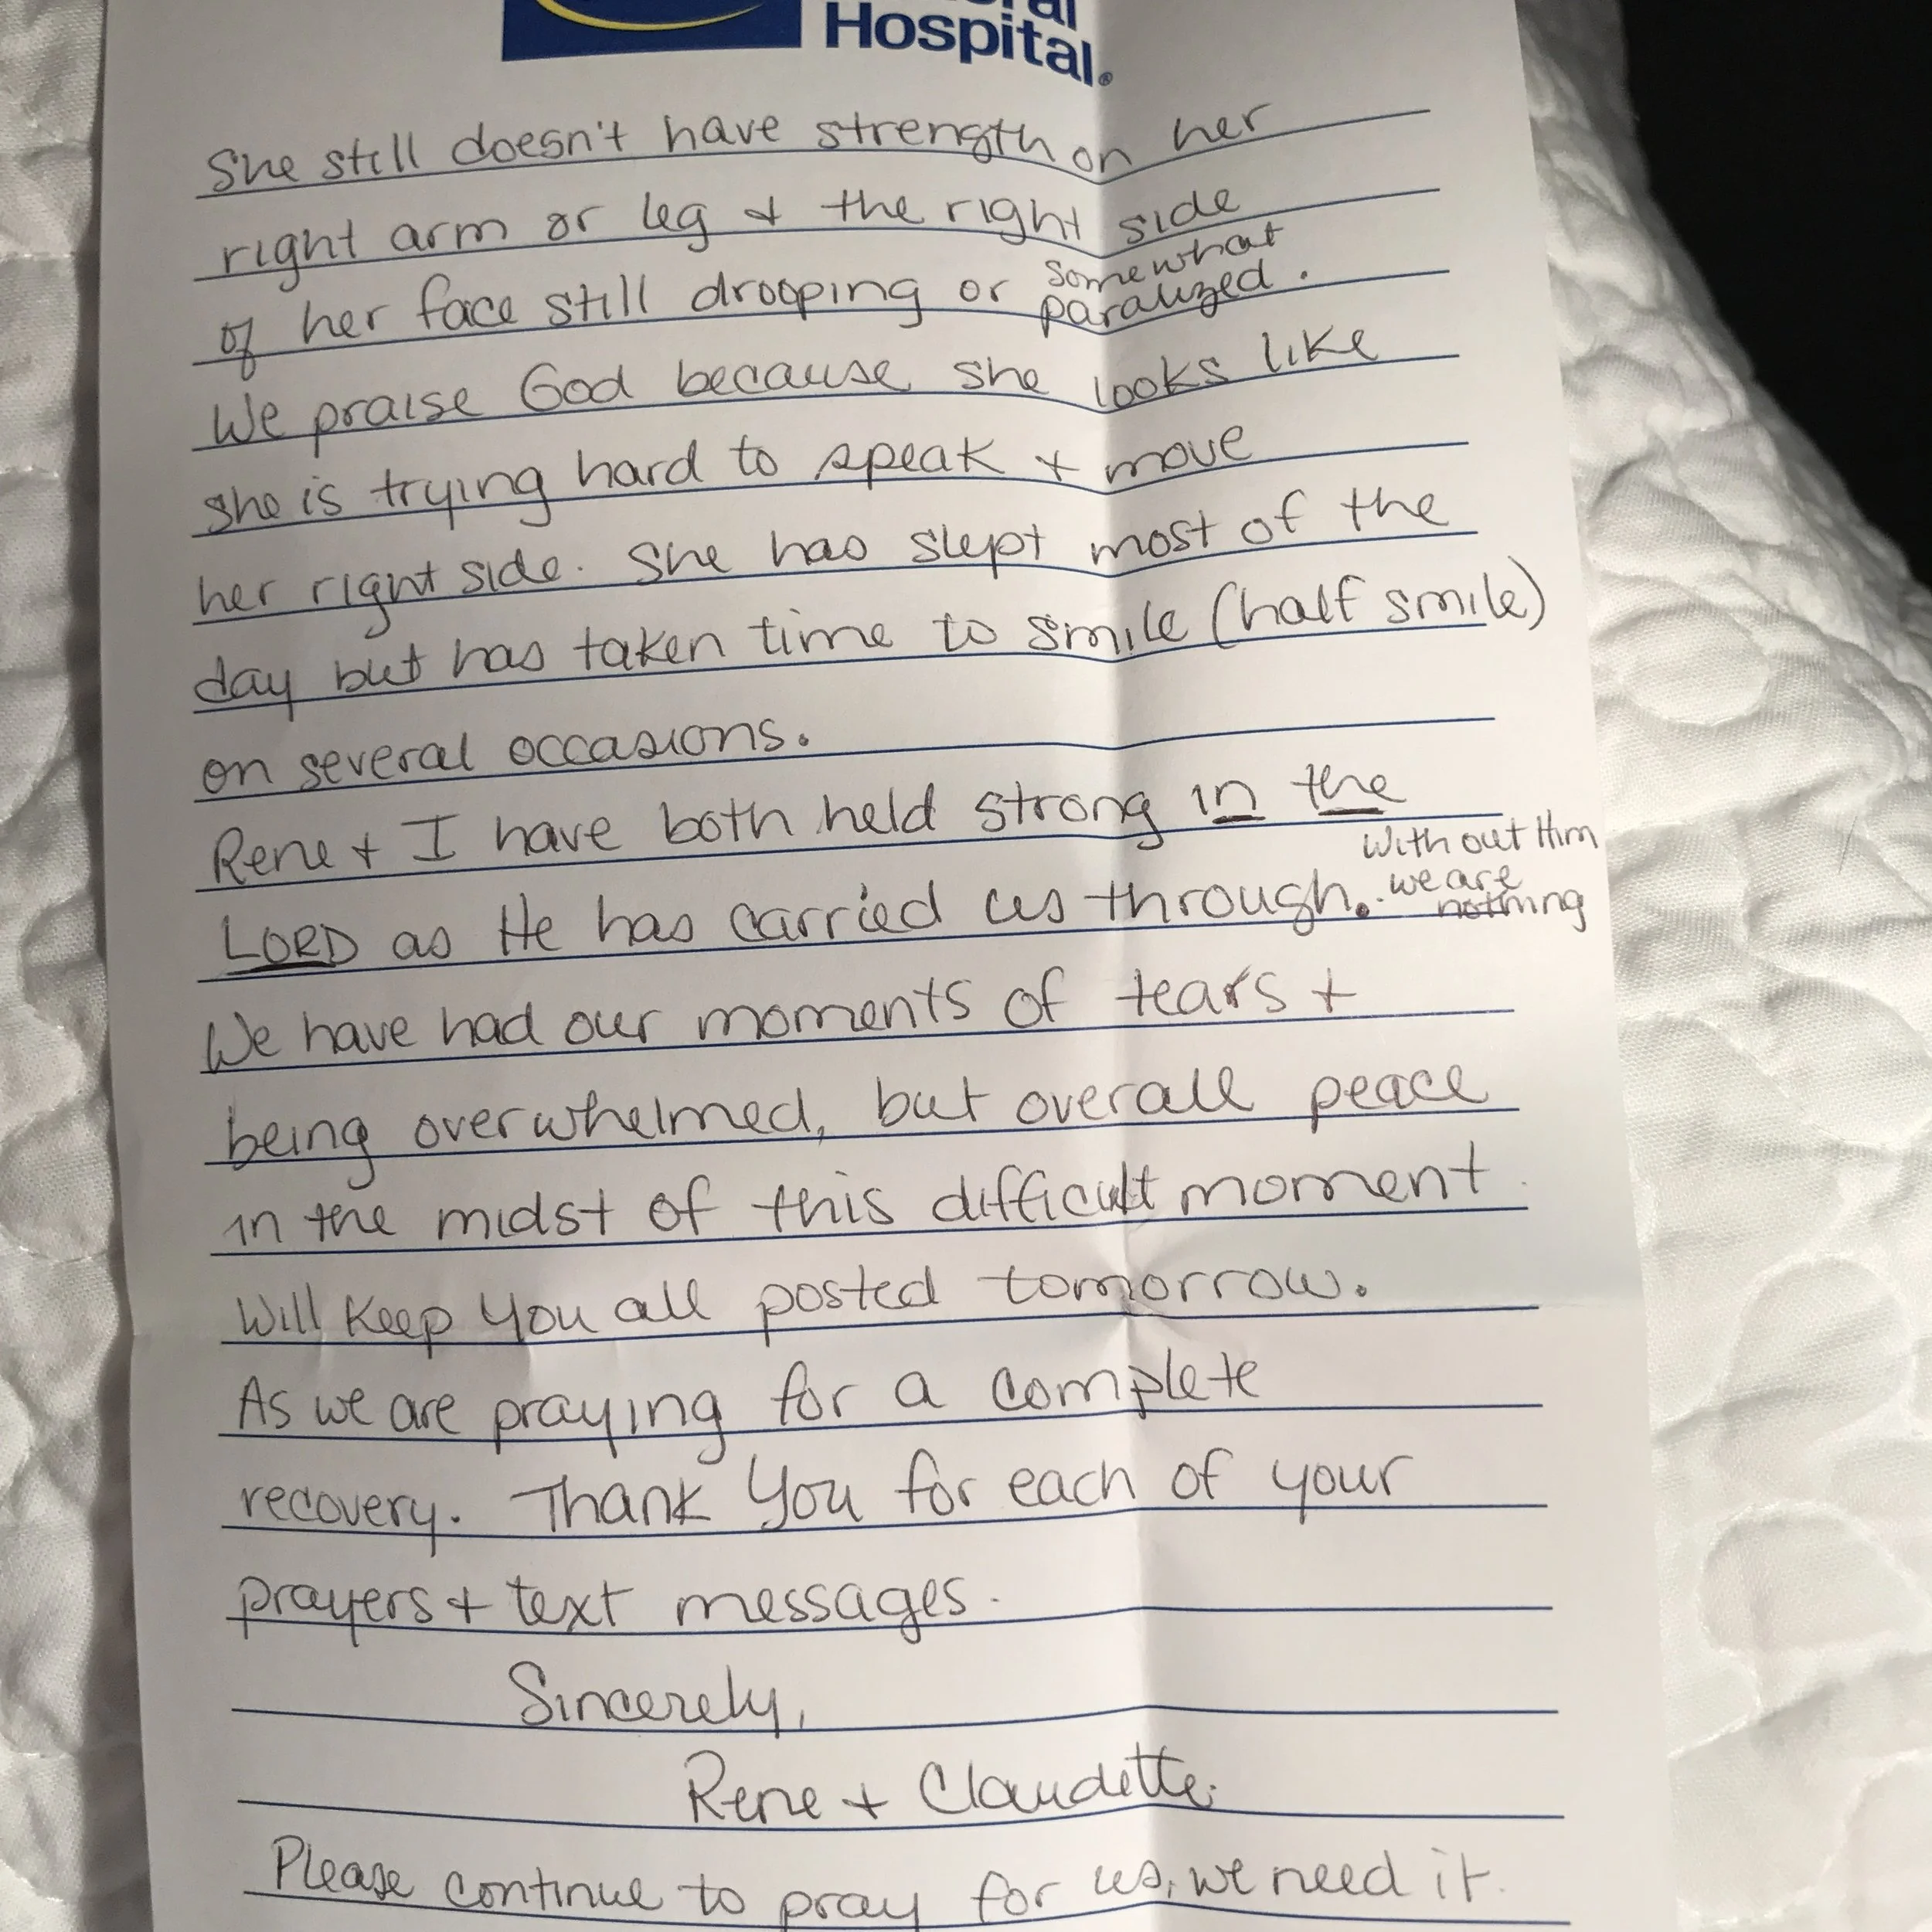 Hospital®
She still doesn't have strength on her
right arm or leg + the right side
of her face still drooping or somewhat paralized.
We praise God because she looks like
she is trying hard to speak + move
her right side. She has slept most of the
day but has taken time to smile (half smile)
on several occasions.
Rene + I have both held strong in the
LORD as He has carried us through. Without Him we are nothing
We have had our moments of tears +
being overwhelmed, but overall peace
in the midst of this difficult moment.
Will keep you all posted tomorrow.
As we are praying for a complete
recovery. Thank you for each of your
prayers + text messages.
Sincerely,
Rene + Claudette.
Please continue to pray for us, we need it.